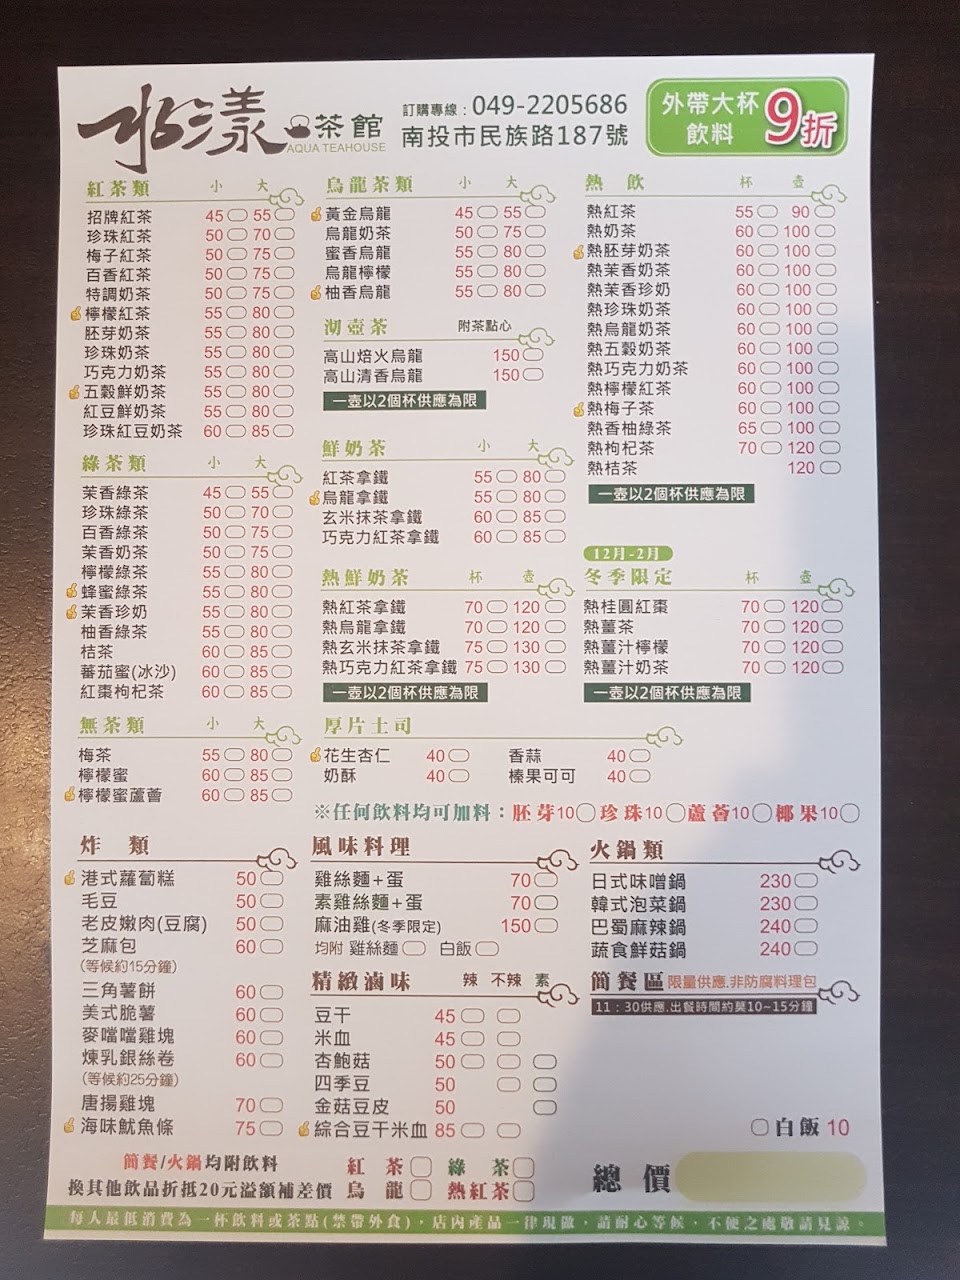 水漾茶館
AQUA TEAHOUSE
訂購專線：049-2205686
南投市民族路187號
外帶大杯飲料9折
紅茶類 小 大
招牌紅茶 45 55
珍珠紅茶 50 70
梅子紅茶 50 75
百香紅茶 50 75
特調奶茶 50 75
檸檬紅茶 55 80
胚芽奶茶 55 80
珍珠奶茶 55 80
巧克力奶茶 55 80
五穀鮮奶茶 55 80
紅豆鮮奶茶 55 80
珍珠紅豆奶茶 60 85
綠茶類 小 大
茉香綠茶 45 55
珍珠綠茶 50 70
百香綠茶 50 75
茉香奶茶 50 75
檸檬綠茶 55 80
蜂蜜綠茶 55 80
茉香珍奶 55 80
柚香綠茶 55 80
桔茶 60 85
蕃茄蜜(冰沙) 60 85
紅棗枸杞茶 60 85
無茶類 小 大
梅茶 55 80
檸檬蜜 60 85
檸檬蜜蘆薈 60 85
烏龍茶類 小 大
黃金烏龍 45 55
烏龍奶茶 50 75
蜜香烏龍 55 80
烏龍檸檬 55 80
柚香烏龍 55 80
沏壺茶 附茶點心
高山焙火烏龍 150
高山清香烏龍 150
一壺以2個杯供應為限
鮮奶茶 小 大
紅茶拿鐵 55 80
烏龍拿鐵 55 80
玄米抹茶拿鐵 60 85
巧克力紅茶拿鐵 60 85
熱鮮奶茶 杯 壺
熱紅茶拿鐵 70 120
熱烏龍拿鐵 70 120
熱玄米抹茶拿鐵 75 130
熱巧克力紅茶拿鐵 75 130
一壺以2個杯供應為限
熱飲 杯 壺
熱紅茶 55 90
熱奶茶 60 100
熱胚芽奶茶 60 100
熱茉香奶茶 60 100
熱茉香珍奶 60 100
熱珍珠奶茶 60 100
熱烏龍奶茶 60 100
熱五穀奶茶 60 100
熱巧克力奶茶 60 100
熱檸檬紅茶 60 100
熱梅子茶 60 100
熱香柚綠茶 65 100
熱枸杞茶 70 120
熱桔茶 120
一壺以2個杯供應為限
12月-2月
冬季限定 杯 壺
熱桂圓紅棗 70 120
熱薑茶 70 120
熱薑汁檸檬 70 120
熱薑汁奶茶 70 120
一壺以2個杯供應為限
厚片土司
花生杏仁 40 香蒜 40
奶酥 40 榛果可可 40
※任何飲料均可加料：胚芽10 珍珠10 蘆薈10 椰果10
炸類
港式蘿蔔糕 50
毛豆 50
老皮嫩肉(豆腐) 50
芝麻包 60
(等候約15分鐘)
三角薯餅 60
美式脆薯 60
麥噹噹雞塊 60
煉乳銀絲卷 60
(等候約25分鐘)
唐揚雞塊 70
海味魷魚條 75
風味料理
雞絲麵+蛋 70
素雞絲麵+蛋 70
麻油雞(冬季限定) 150
均附 雞絲麵 白飯
精緻滷味 辣 不辣 素
豆干 45
米血 45
杏鮑菇 50
四季豆 50
金菇豆皮 50
綜合豆干米血 85
火鍋類
日式味噌鍋 230
韓式泡菜鍋 230
巴蜀麻辣鍋 240
蔬食鮮菇鍋 240
簡餐區 限量供應.非防腐料理包
11：30供應.出餐時間約莫10~15分鐘
白飯 10
簡餐/火鍋均附飲料 紅茶 綠茶
換其他飲品折抵20元溢額補差價 烏龍 熱紅茶
總價
每人最低消費為一杯飲料或茶點(禁帶外食)，店內產品一律現做，請耐心等候，不便之處敬請見諒。